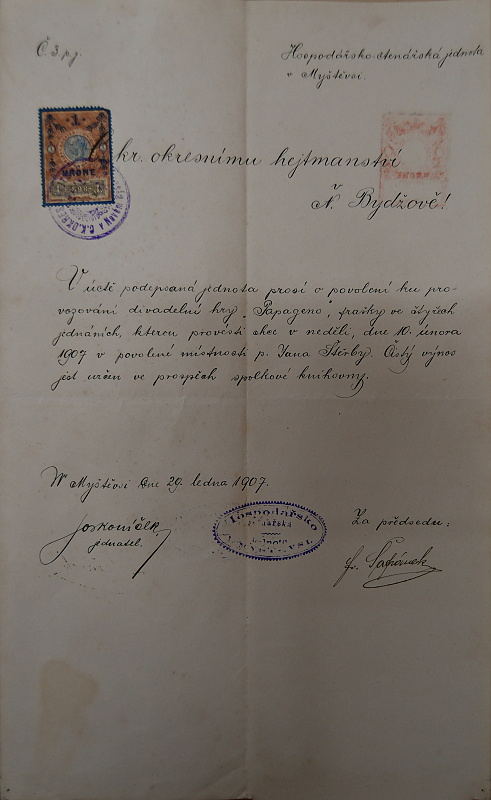 Č. 3 pj.
Hospodářsko-čtenářská jednota
v Myštěvsi.
1
KRONE
1898
kr. okresnímu hejtmanství
N. Bydžově!
V úctě podepsaná jednota prosí o povolení ku pro-
vozování divadelní hry „Papageno", frašky ve čtyřech
jednáních, kterou provésti chce v neděli, dne 10. února
1907 v povolené místnosti p. Jana Štěrby. Čistý výnos
jest určen ve prospěch spolkové knihovny.
V Myštěvsi dne 29. ledna 1907.
jednatel.
Hospodářsko
čtenářská
jednota
Za předsedu:
Fr.